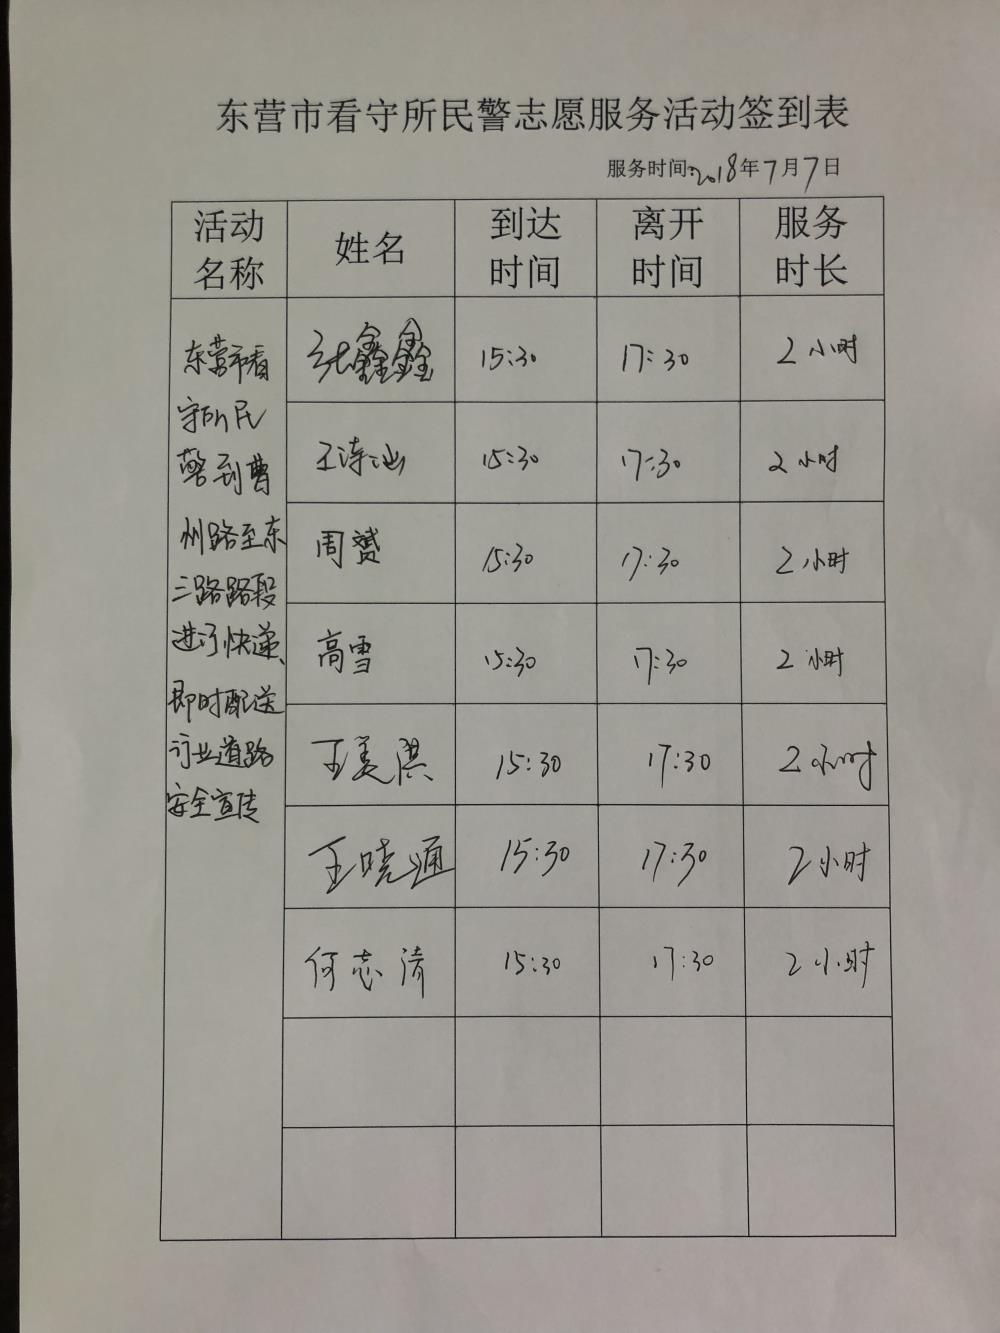 东营市看守所民警志愿服务活动签到表
服务时间:2018年7月7日
活动名称 姓名 到达时间 离开时间 服务时长
东营市看
守所民
警到曹
州路至东
三路路段
进行快递、
即时配送
行业道路
安全宣传
张鑫鑫 15:30 17:30 2小时
王涛汕 15:30 17:30 2小时
周赟 15:30 17:30 2小时
高雪 15:30 17:30 2小时
王美淇 15:30 17:30 2小时
王晓通 15:30 17:30 2小时
何志清 15:30 17:30 2小时